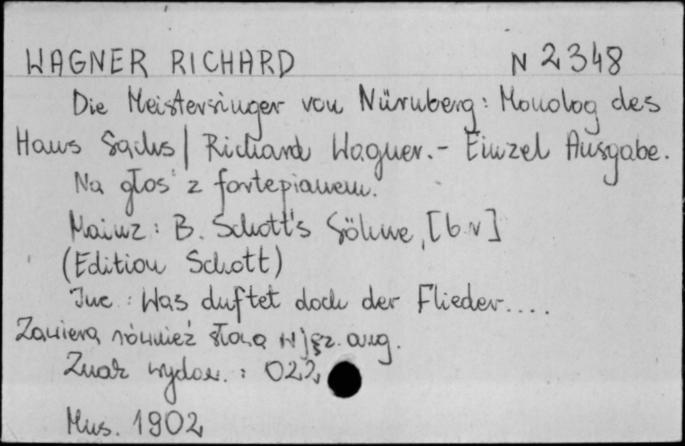 WAGNER RICHARD N 2348
Die Meistersinger von Nürnberg: Monolog des
Hans Sachs | Richard Wagner. - Einzel Ausgabe.
Na głos z fortepianem.
Mainz: B. Schott's Söhne, [b.r]
(Edition Schott)
Inc.: Was duftet doch der Flieder....
Zawiera również słowa w jęz. ang.
Znak wydaw.: 022
Mus. 1902